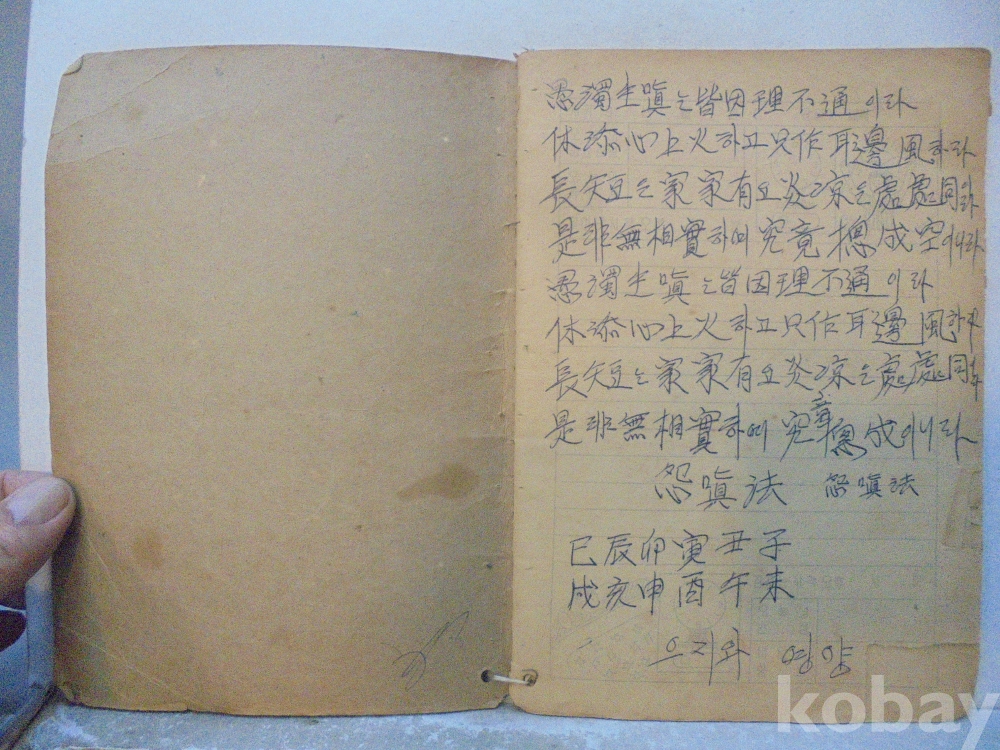 愚濁生嗔는皆因理不通이라
休添心上火하고只作耳邊風하라
長短는家家有요炎凉는處處同이라
是非無相實하여究竟摠成空이니라
愚濁生嗔는皆因理不通이라
休添心上火하고只作耳邊風하라
長短는家家有요炎凉는處處同
是非無相實하여究竟摠成이니라
怨嗔法 怨嗔法
巳辰卯寅丑子
戌亥申酉午未
으지와 영양
kobay